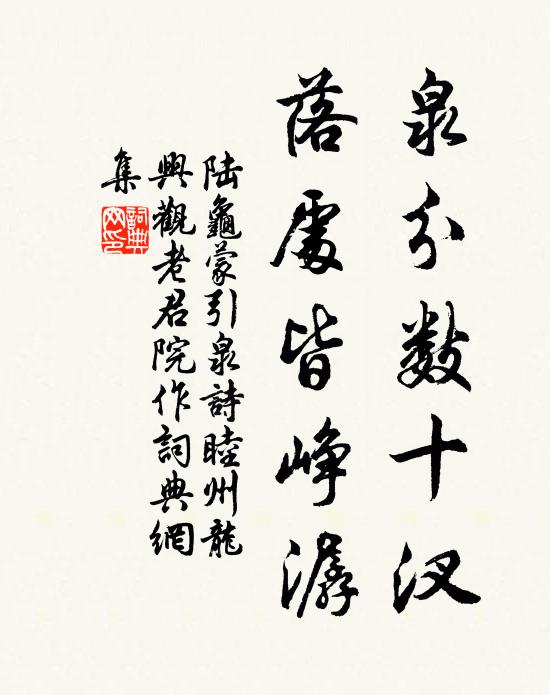 泉分数十汊
落處皆峥潺
陆龜蒙引泉詩睦州龍
興觀老君院作詞典網
集
詞典
网印